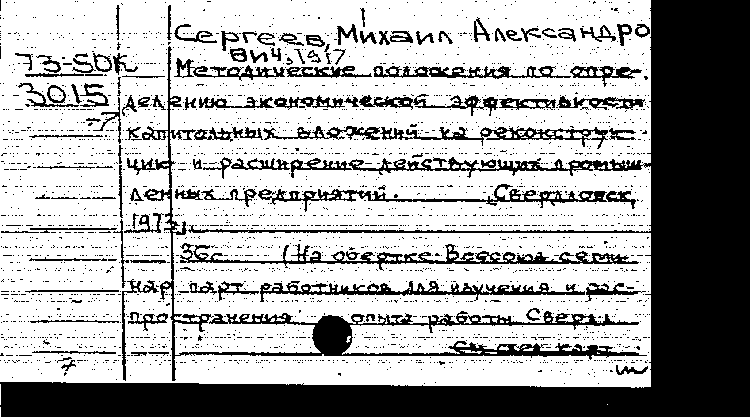 Сергеев, Михаил Александро
73-SDK
3015
-7
Методические положения по опре-
делению экономической эффективности
капитальных вложений на реконструк-
цию и расширение действующих промыш-
ленных предприятий. Свердловск,
1973.
36с (На обертке: Всесоюз семи-
нар парт работников для изучения и рас-
пространения опыта работы Свердл
См след карт
7